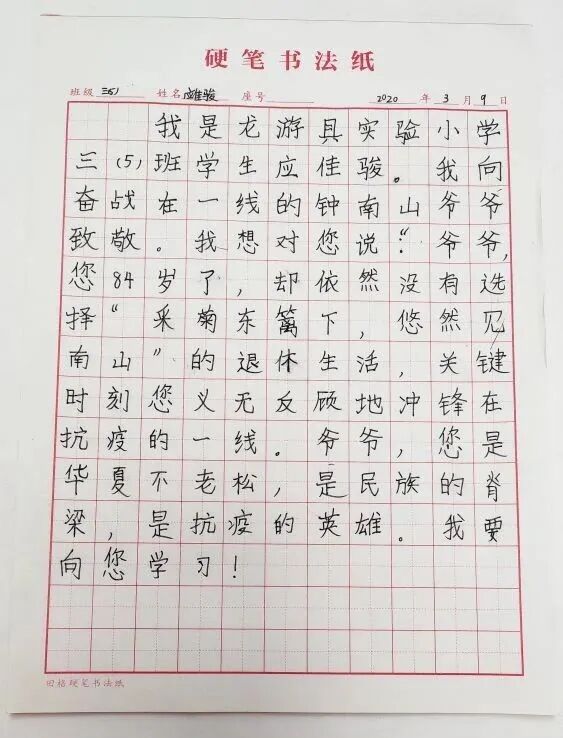 硬笔书法纸
班级 三(5) 姓名 应佳骏 座号 2020 年 3 月 9 日
我是龙游县实验小学
三(5)班学生应佳骏。我向
奋战在一线的钟南山爷爷
致敬。我想对您说：“爷爷，
您84岁了，却依然没有选
择“采菊东篱下，悠然见
南山”的退休生活，关键
时刻您义无反顾地冲锋在
抗疫的一线。爷爷，您是
华夏不老松，是民族的脊
梁，是抗疫的英雄。我要
向您学习！
田格硬笔书法纸